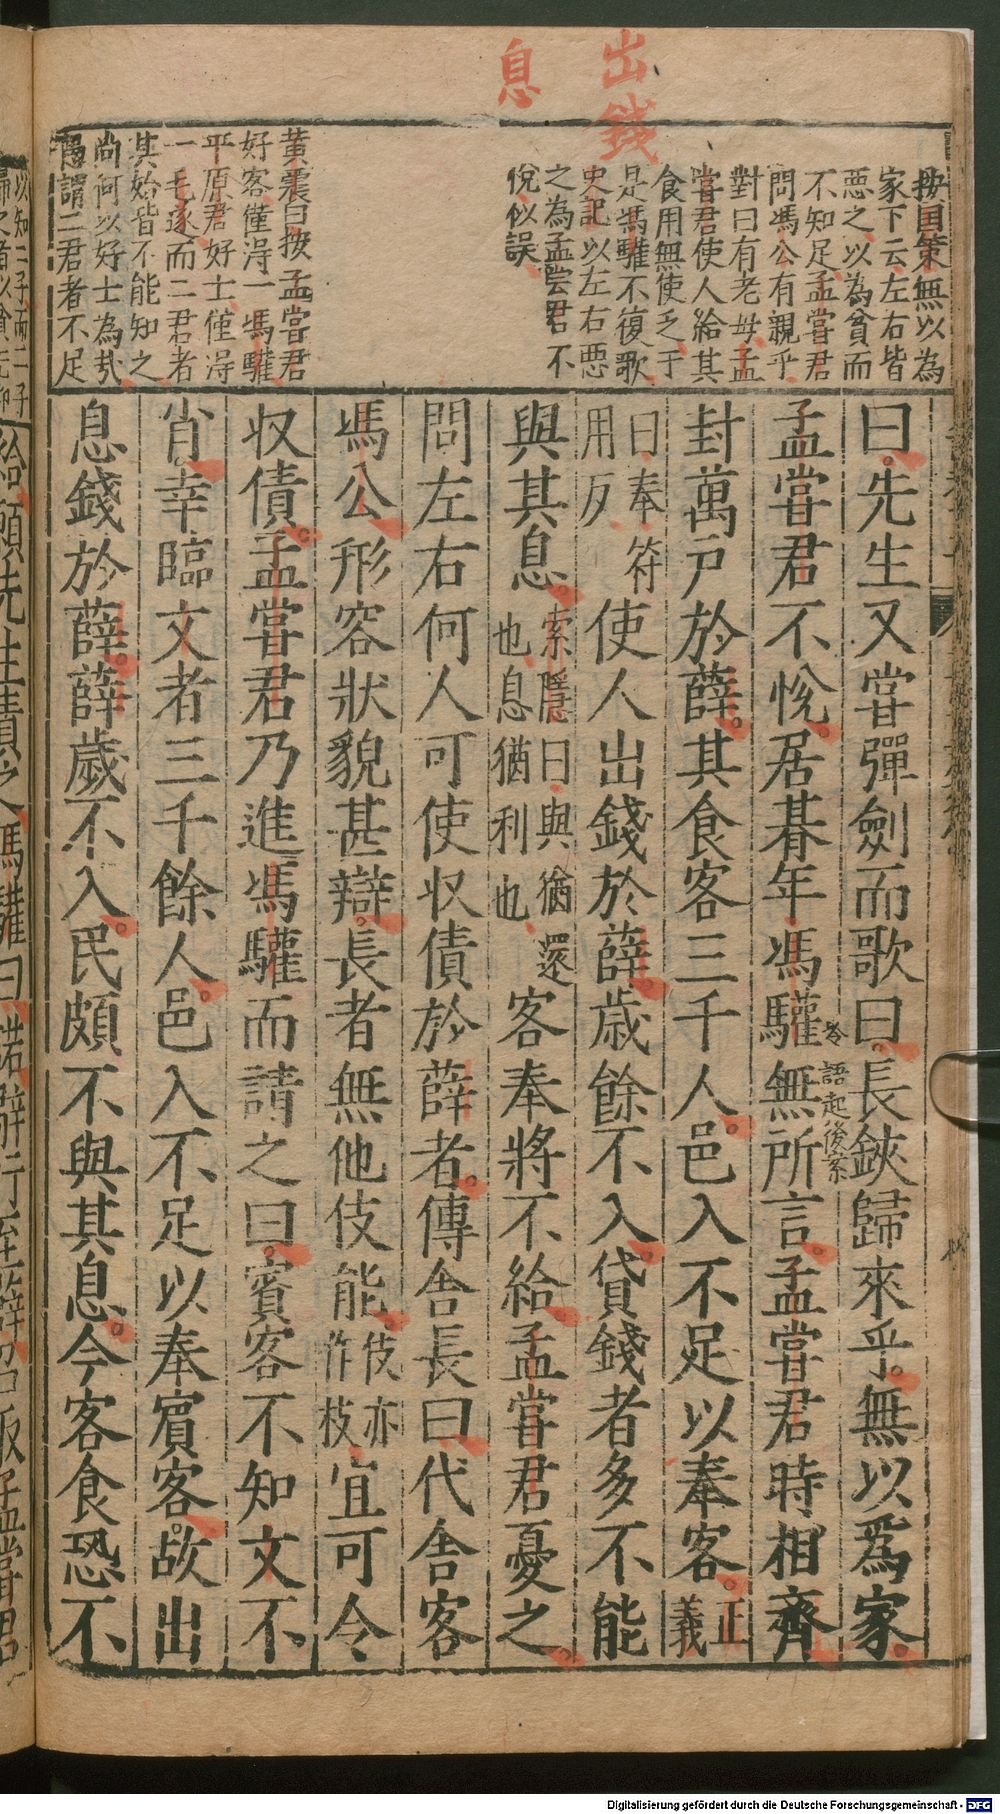 出錢
息
按国策無以為
家下云左右皆
惡之以為貧而
不知足孟嘗君
問馮公有親乎
對曰有老母孟
嘗君使人給其
食用無使乏于
是馮驩不復歌
史記以左右惡
之為孟嘗君不
悅似誤
黃震曰按孟嘗君
好客僅淂一馮驩
平原君好士僅淂
一毛遂而二君者
其始皆不能知之
尚何以好士為㢤
愚謂二君者不足
曰先生又嘗彈劍而歌曰長鋏歸來乎無以爲家
孟嘗君不悅居朞年馮驩無所言孟嘗君時相齊
冷語起後案
封萬戶於薛其食客三千人邑入不足以奉客正義
曰奉符用反使人出錢於薛歲餘不入貸錢者多不能
與其息索隱曰與猶還也息猶利也客奉將不給孟嘗君憂之
問左右何人可使收債於薛者傳舍長曰代舍客
馮公形容狀貌甚辯長者無他伎能伎亦作枝宜可令
收債孟嘗君乃進馮驩而請之曰賓客不知文不
肖幸臨文者三千餘人邑入不足以奉賓客故出
息錢於薛薛歲不入民頗不與其息今客食恐不
以知二子而二子
給願先生責之馮驩曰諾辭行至薛召取孟嘗君
Digitalisierung gefördert durch die Deutsche Forschungsgemeinschaft - DFG